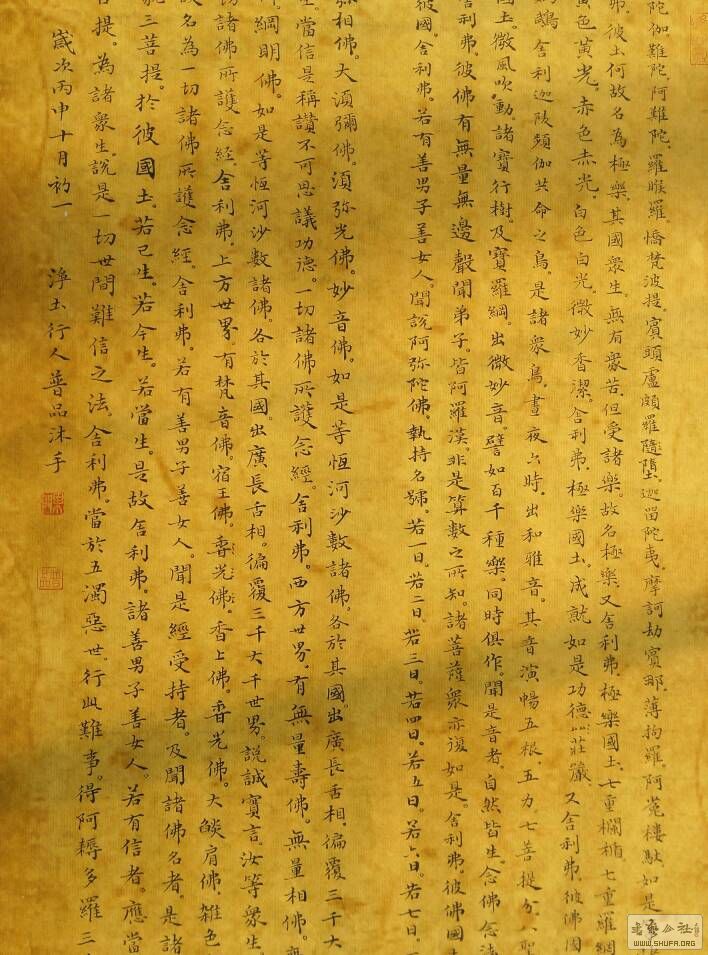 陀伽難陀。阿難陀。羅睺羅。憍梵波提。賓頭盧頗羅隨墮。迦留陀夷。摩訶劫賓那。薄拘羅。阿㝹樓馱。如是
弗。彼土何故名為極樂。其國眾生。無有眾苦。但受諸樂。故名極樂。又舍利弗。極樂國土。七重欄楯。七重羅網
黃色黃光。赤色赤光。白色白光。微妙香潔。舍利弗。極樂國土。成就如是功德莊嚴。又舍利弗。彼佛國
鵡。舍利迦陵頻伽共命之鳥。是諸眾鳥。晝夜六時。出和雅音。其音演暢五根五力七菩提分八聖
國土。微風吹動。諸寶行樹。及寶羅網。出微妙音。譬如百千種樂。同時俱作。聞是音者。自然皆生念佛念法
利弗。彼佛有無量無邊聲聞弟子。皆阿羅漢。非是算數之所知。諸菩薩眾亦復如是。舍利弗。彼佛國土
彼國。舍利弗。若有善男子善女人。聞說阿弥陀佛。執持名號。若一日。若二日。若三日。若四日。若五日。若六日。若七日。一
弥相佛。大須彌佛。須弥光佛。妙音佛。如是等恆河沙數諸佛。各於其國。出廣長舌相。徧覆三千大
生。當信是稱讚不可思議功德。一切諸佛所護念經。舍利弗。西方世界。有無量壽佛。無量相佛。無
網明佛。如是等恆河沙數諸佛。各於其國。出廣長舌相。徧覆三千大千世界。說誠實言。汝等眾生。
切諸佛所護念經。舍利弗。上方世界。有梵音佛。宿王佛。香光佛。香上佛。香光佛。大燄肩佛。雑色
故名為一切諸佛所護念經。舍利弗。若有善男子善女人。聞是經受持者。及聞諸佛名者。是諸
三菩提。於彼國土。若已生。若今生。若當生。是故舍利弗。諸善男子善女人。若有信者。應當
菩提。為諸眾生。說是一切世間難信之法。舍利弗。當於五濁惡世。行此難事。得阿耨多羅三
歲次丙申十月初一 淨土行人普品沐手
WWW.SHUFA.ORG